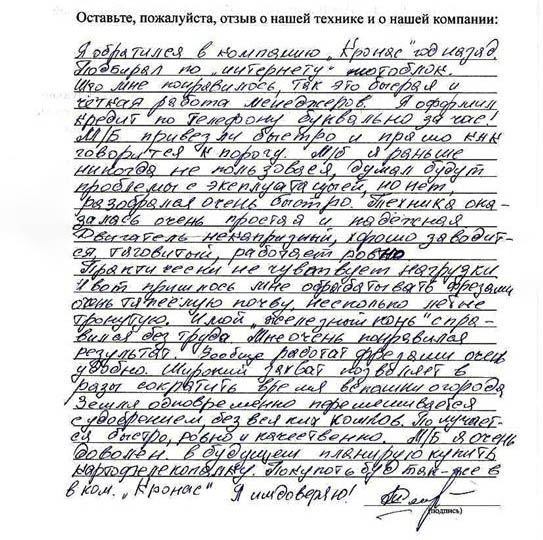 Оставьте, пожалуйста, отзыв о нашей технике и о нашей компании:
Я обратился в компанию „Кронас" год назад.
Подбирал по „интернету" мотоблок.
Что мне понравилось, так это быcрая и
чёткая работа менеджеров. Я оформил
кредит по телефону буквально за час!
М/Б привезли быстро и прямо как
говорится к порогу. М/Б я раньше
никогда не пользовался, думал будут
проблемы с эксплуатацыей, но нет,
разобрался очень быстро. Техника ока-
залась очень простая и надёжная
Двигатель некапризный, хорошо заводит-
ся, тяговитый, работает ровно
Практически не чувствует нагрузки
И вот пришлось мне обрабатывать фрезами
очень тяжёлую почву, несколько лет не
тронутую. И мой „железный конь" спра-
вился без труда. Мне очень понравился
результат. Вообще работат фрезами очень
удобно. Широкий захват позваляет в
разы сократить время вспашки огорода
Земля одновременно перемешивается
с удобрением, без всяких комков. Получает-
ся быстро, ровно и качественно. М/Б я очень
доволен. в будущем планирую купить
картофелекопалку. Покупать буд так-же в
в ком. „Кронас" Я им доверяю!
(подпись)